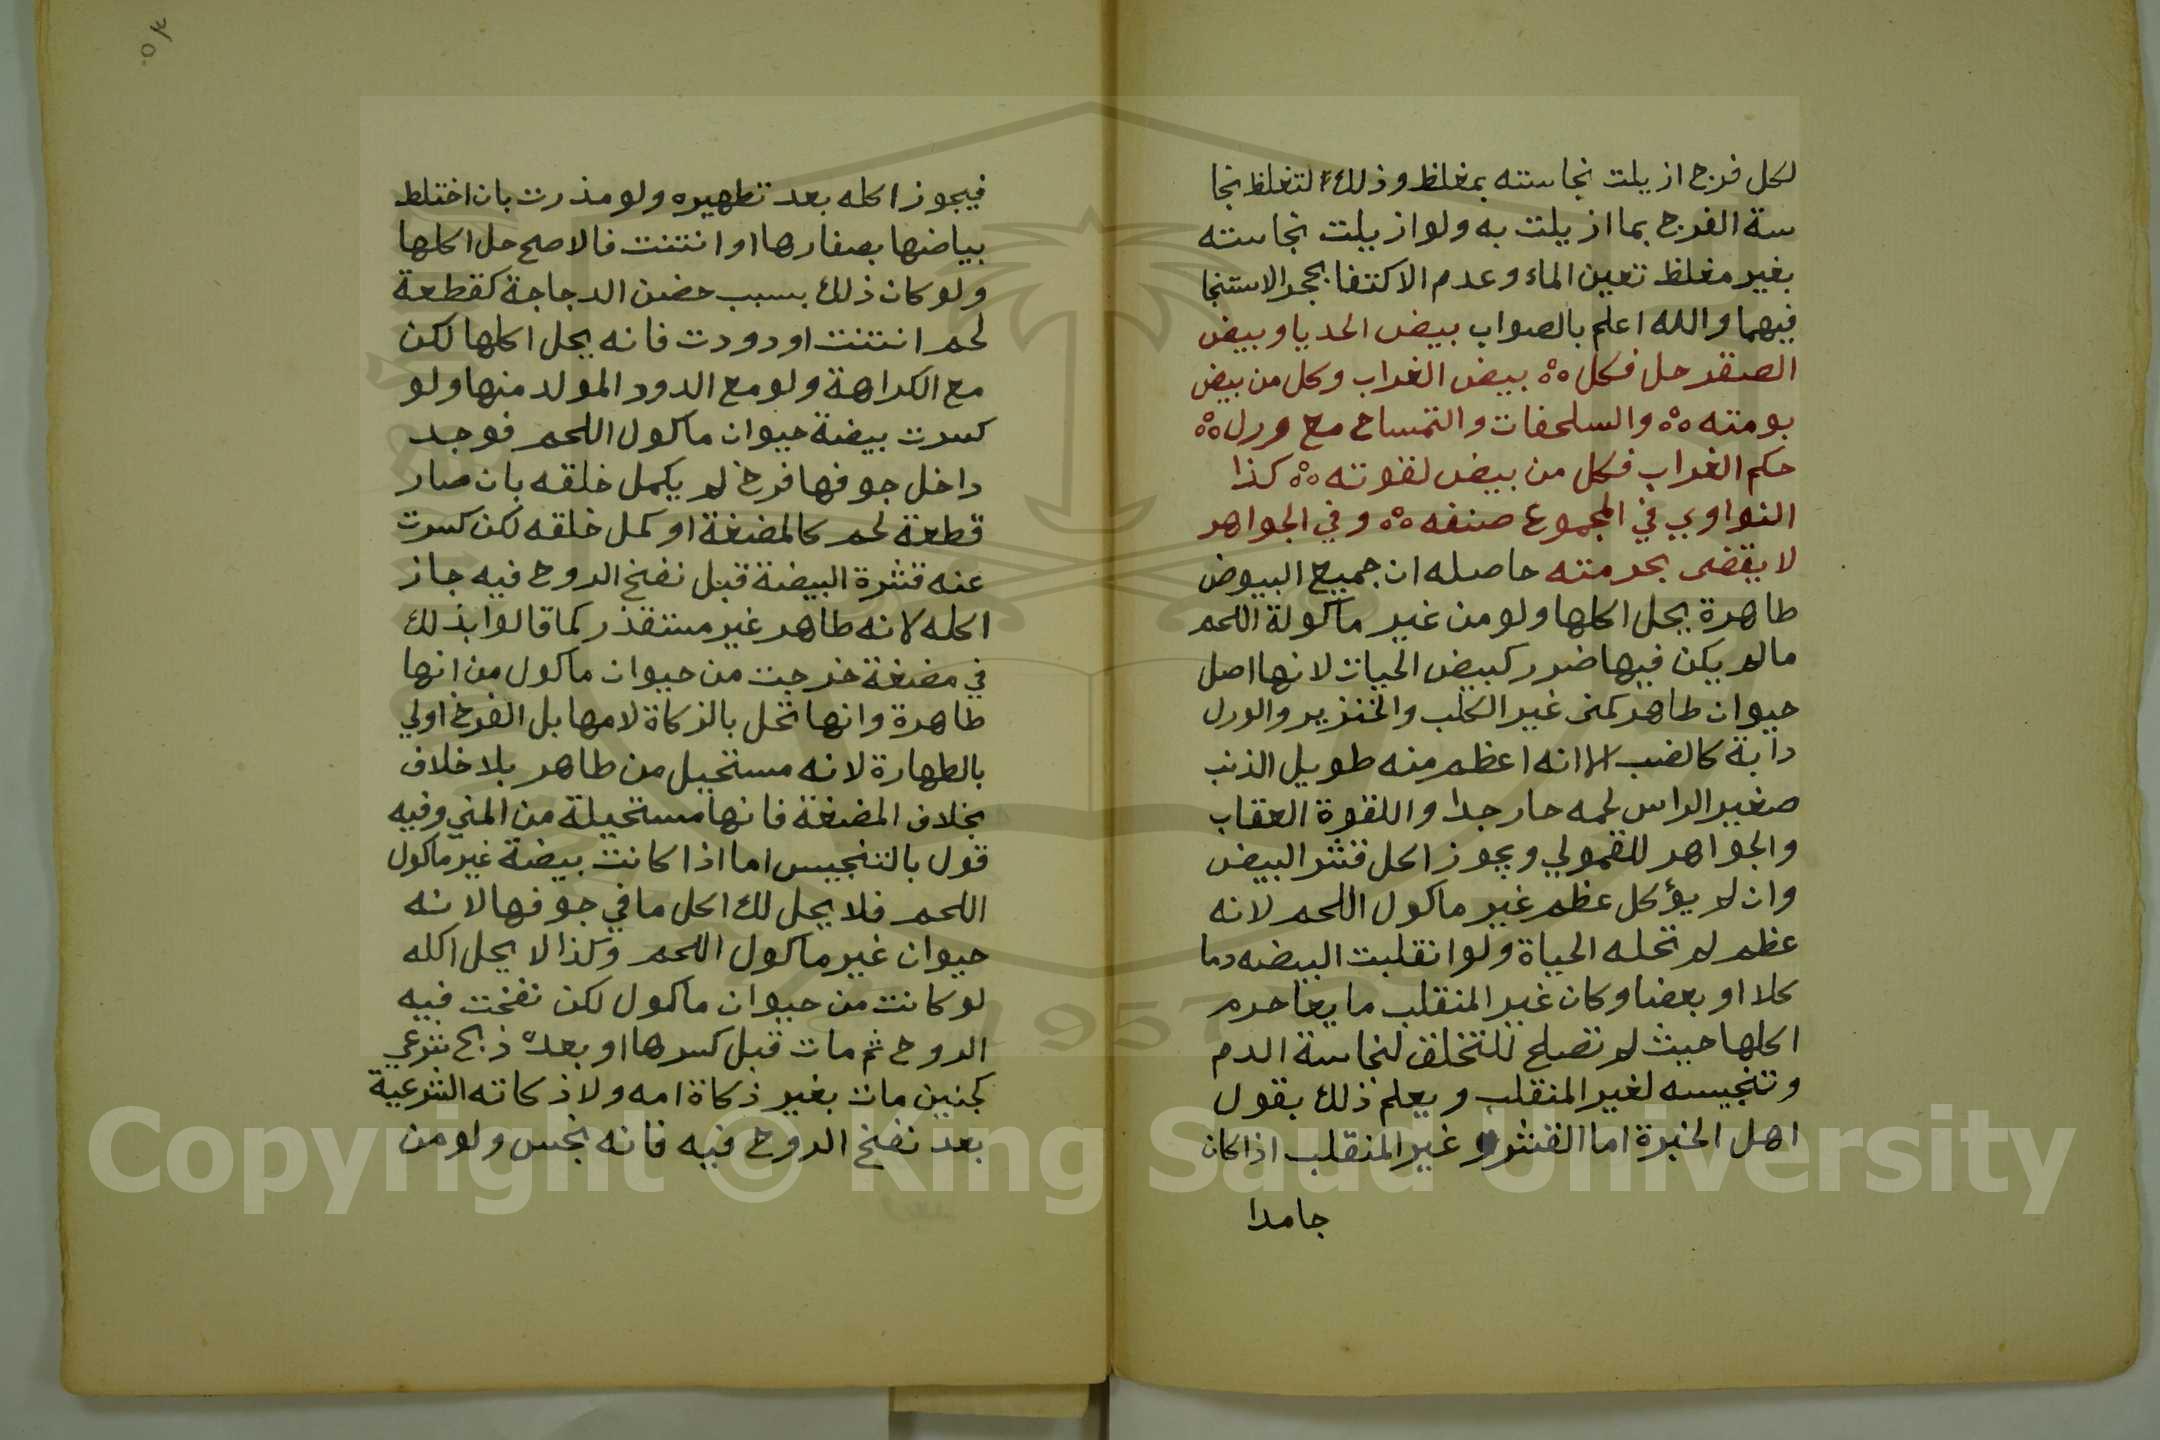 لكل فرج ازيلت نجاسته بمغلظ وذلك لتغلظ نجا
سة الفرج بما ازيلت به ولو ازيلت نجاسته
بغير مغلظ تعين الماء وعدم الاكتفا بحجر الاستنجا
فيهما والله اعلم بالصواب بيض الحديا وبيض
الصقر حل فكل ٥° بيض الغراب وكل من بيض
بومته ٥° والسلحفات والتمساح مع ورل ٥°
حكم الغراب فكل من بيض لقوته ٥° كذا
النواوي في المجموع صنفه ٥° وفي الجواهر
لا يقضى بحرمته حاصله ان جميع البيوض
طاهرة يحل اكلها ولو من غير ماكولة اللحم
مالم يكن فيها ضرر كبيض الحيات لانها اصل
حيوان طاهر كمنى غير الكلب والخنزير والورل
دابة كالضب الا انه اعظم منه طويل الذنب
صغير الراس لحمه حار جدا واللقوة العقاب
والجواهر للقمولي ويجوز اكل قشر البيض
وان لم يؤكل عظم غير ماكول اللحم لانه
عظم لم تحله الحياة ولو انقلبت البيضه دما
كلا او بعضا وكان غير المنقلب مايعا حرم
اكلها حيث لم تصلح للتخلق لنجاسة الدم
وتنجيسه لغير المنقلب ويعلم ذلك بقول
اهل الخبرة اما القشر و غير المنقلب اذا كان
جامدا
٥٣
فيجوز اكله بعد تطهيره ولو مذرت بان اختلط
بياضها بصفارها او انتنت فالاصح حل اكلها
ولو كان ذلك بسبب حضن الدجاجة كقطعة
لحم انتنت او دودت فانه يحل اكلها لكن
مع الكراهة ولو مع الدود المولد منها ولو
كسرت بيضة حيوان ماكول اللحم فوجد
داخل جوفها فرخ لم يكمل خلقه بان صار
قطعة لحم كالمضغة او كمل خلقه لكن كسرت
عنه قشرة البيضة قبل نفخ الروح فيه جاز
اكله لانه طاهر غير مستقذر كما قالوا بذلك
في مضغة خرجت من حيوان ماكول من انها
طاهرة وانها تحل بالزكاة لامها بل الفرخ اولي
بالطهارة لانه مستحيل من طاهر بلا خلاف
بخلاف المضغة فانها مستحيلة من المني وفيه
قول بالتنجيس اما اذا كانت بيضة غير ماكول
اللحم فلا يحل لك اكل ما في جوفها لانه
حيوان غير ماكول اللحم وكذا لا يحل اكله
لو كانت من حيوان ماكول لكن نفخت فيه
الروح ثم مات قبل كسرها او بعده ذبح شرعي
كجنين مات بغير ذكاة امه ولا ذكاته الشرعية
بعد نفخ الروح فيه فانه نجس ولو من
1957
Copyright © King Saud University